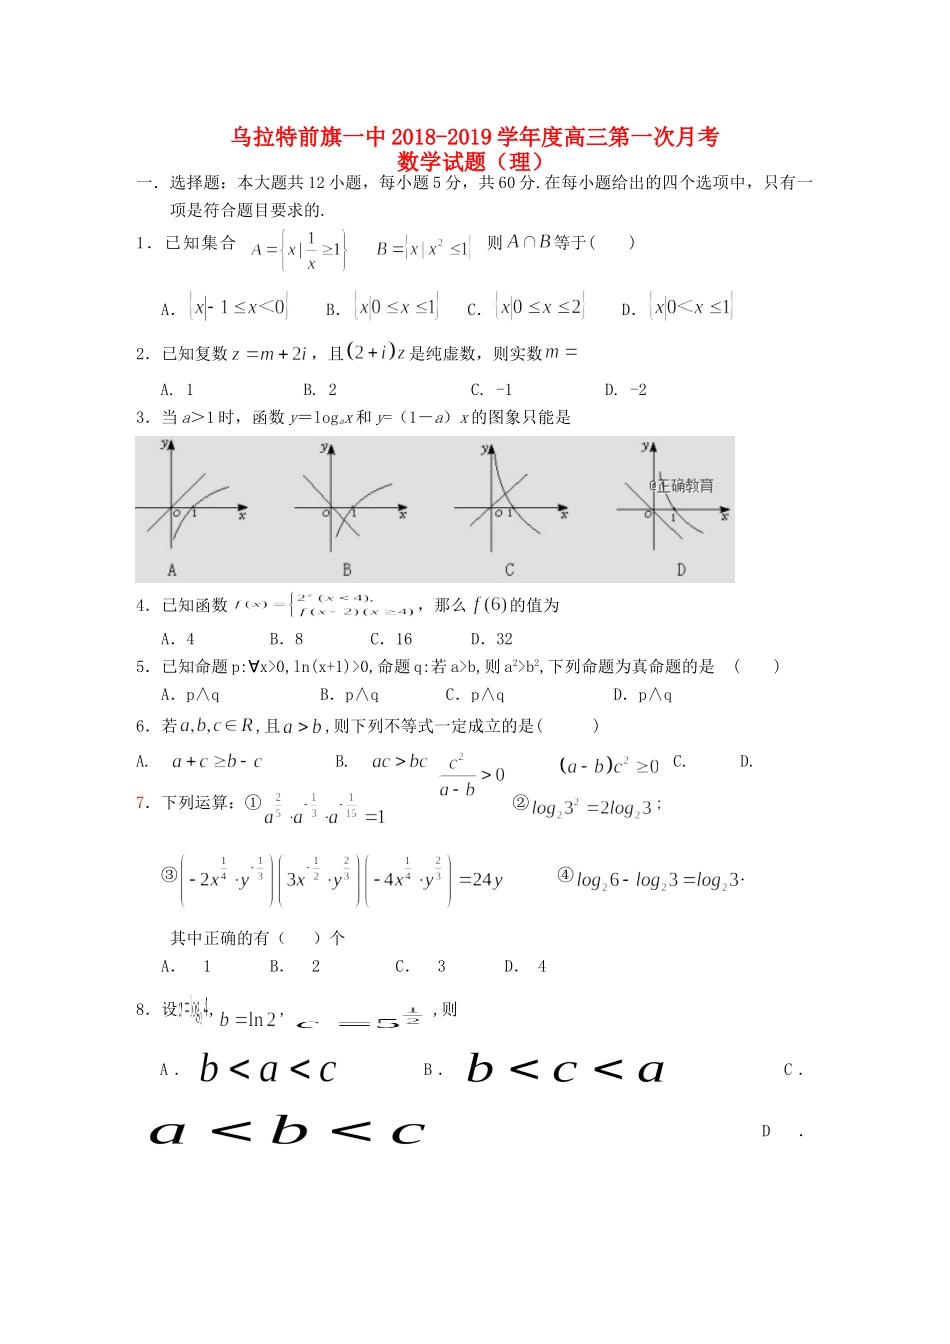 乌拉特前旗一中 2018-2019 学年度高三第一次月考
数学试题（理）
一．选择题：本大题共 12 小题，每小题 5 分，共 60 分.在每小题给出的四个选项中，只有一
项是符合题目要求的.
1．已知集合 A={x|1/x≥1} B={x|x²≤1} 则 A∩B 等于( )
A．{x|-1≤x<0} B．{x|0≤x≤1} C．{x|0≤x≤2} D．{x|0<x≤1}
2．已知复数 z=m+2i，且(2+i)z 是纯虚数，则实数 m=
A. 1 B. 2 C. -1 D. -2
3．当 a＞1 时，函数 y＝logₐx 和 y=（1－a）x 的图象只能是
y y y y
@正确教育
O 1 x O 1 x O 1 x O 1 x
A B C D
4．已知函数 f(x)={2ˣ(x<4), f(x-2)(x≥4)，那么 f(6) 的值为
A．4 B．8 C．16 D．32
5．已知命题 p:∀x>0,ln(x+1)>0,命题 q:若 a>b,则 a²>b²,下列命题为真命题的是 ( )
A．p∧q B．p∧q C．p∧q D．p∧q
6．若 a,b,c∈R,且 a>b,则下列不等式一定成立的是( )
A. a+c≥b-c B. ac>bc c²/(a-b)>0 (a-b)c²≥0 C. D.
7．下列运算：① a^(2/5)·a^(-1/3)·a^(-1/15)=1 ② log₂3²=2log₂3；
③(-2x^(1/4)·y^(-1/3))(3x^(-1/2)·y^(2/3))(-4x^(1/4)·y^(2/3))=24y ④ log₂6-log₂3=log₂3·
其中正确的有（ ）个
A． 1 B． 2 C． 3 D． 4
8．设 , b=ln2, c=5^(1/2) ,则
A． b<a<c B． b<c<a C．
a<b<c D ．